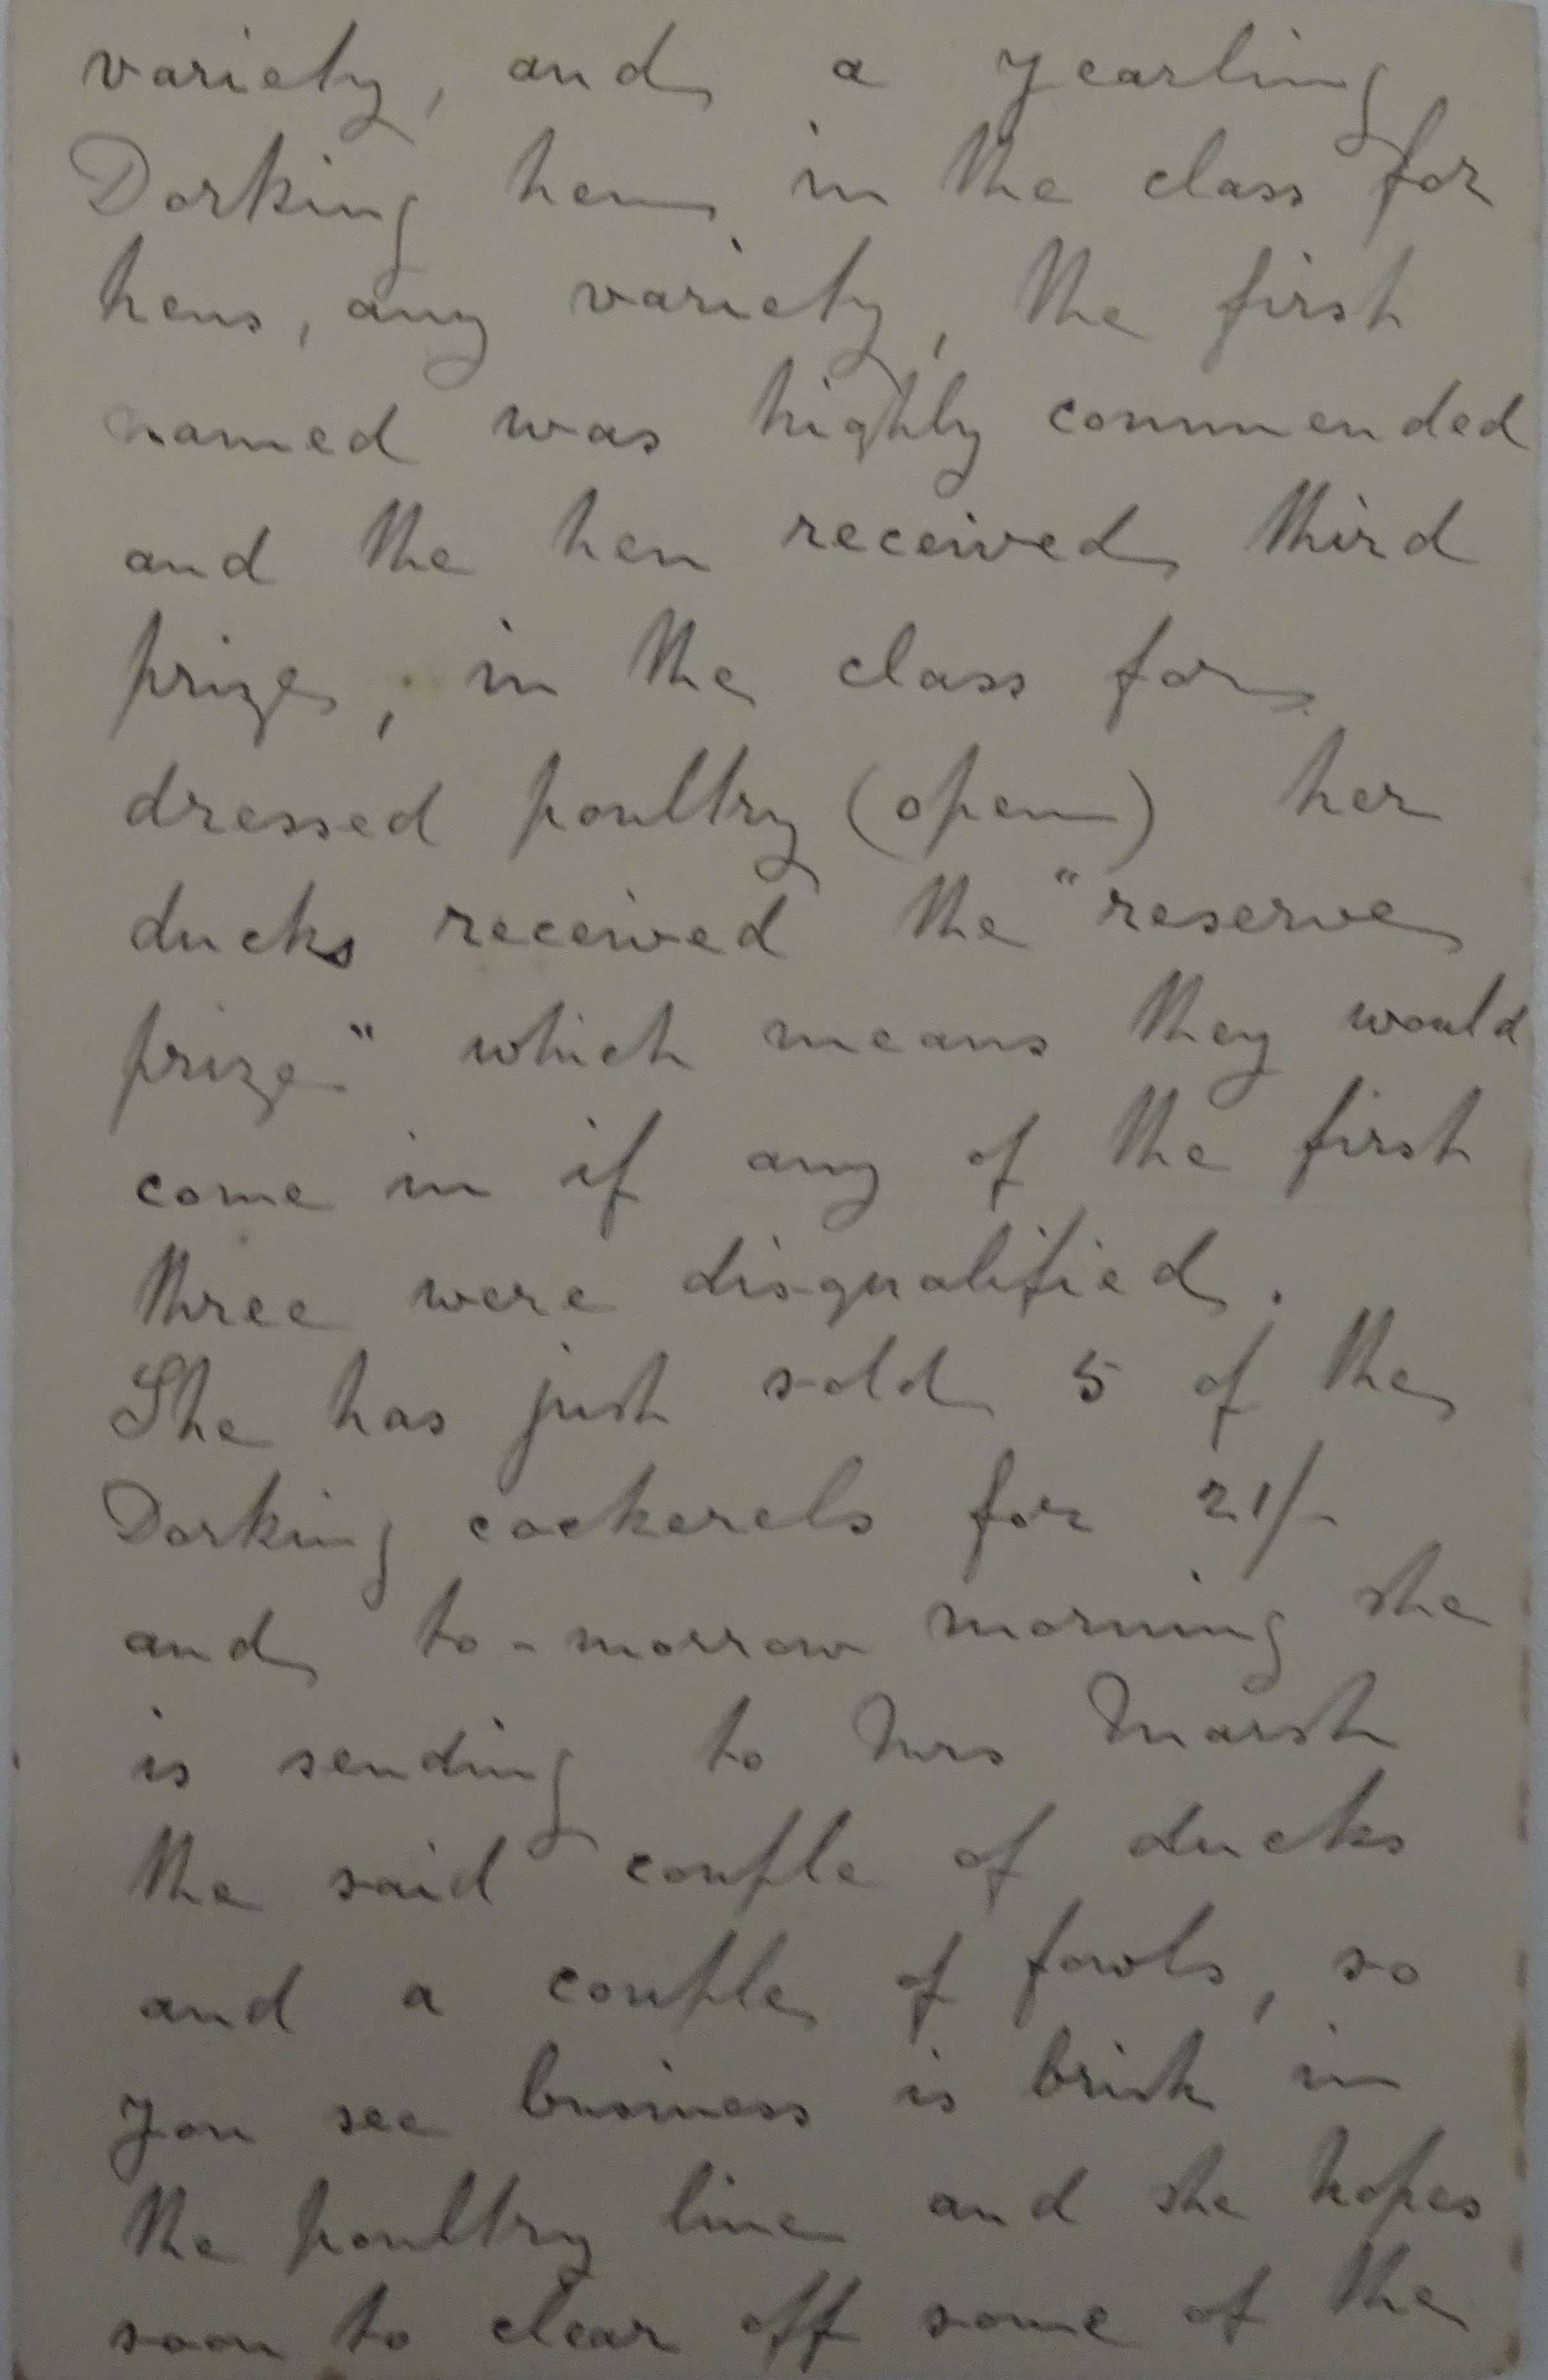 variety, and a yearling
Dorking hen in the class for
hens, any variety, the first
named was highly commended
and the hen received third
prize, in the class for
dressed poultry (open) her
ducks received the "reserve
prize" which means they would
come in if any of the first
three were disqualified.
She has just sold 5 of the
Dorking cockerels for 21/-
and to-morrow morning she
is sending to Mrs Marsh
the said couple of ducks
and a couple of fowls, so
you see business is brisk in
the poultry line and she hopes
soon to clear off some of the